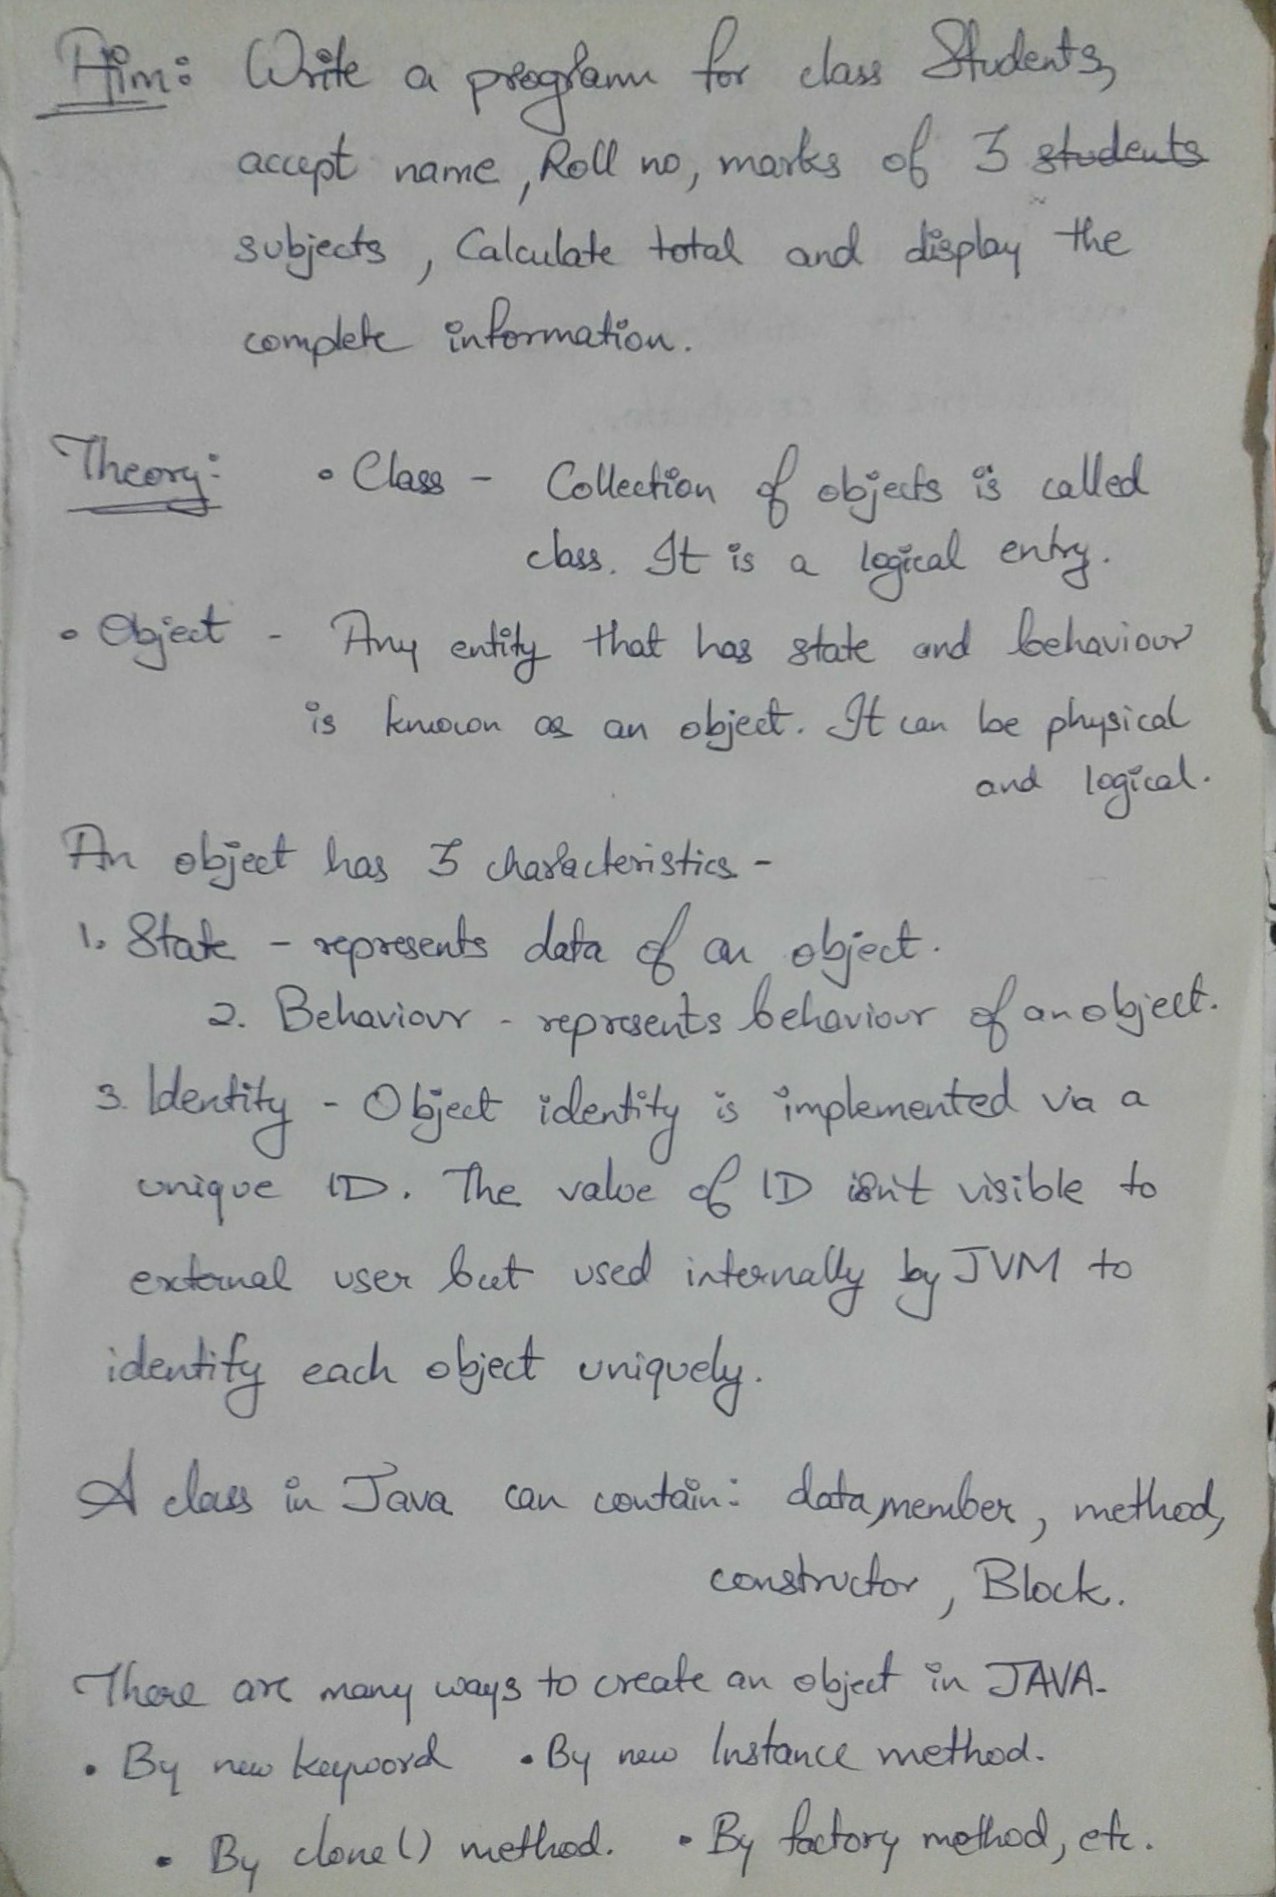 Aim: Write a program for class Students,
accept name, Roll no, marks of 3 students
subjects, Calculate total and display the
complete information.
Theory: • Class - Collection of objects is called
class. It is a logical entry.
• Object - Any entity that has state and behaviour
is known as an object. It can be physical
and logical.
An object has 3 characteristics -
1. State - represents data of an object.
2. Behaviour - represents behaviour of an object.
3. Identity - Object identity is implemented via a
unique ID. The value of ID isn't visible to
external user but used internally by JVM to
identify each object uniquely.
A class in Java can contain: data member, method,
constructor, Block.
There are many ways to create an object in JAVA-
• By new keyword • By new Instance method.
• By clone() method. • By factory method, etc.